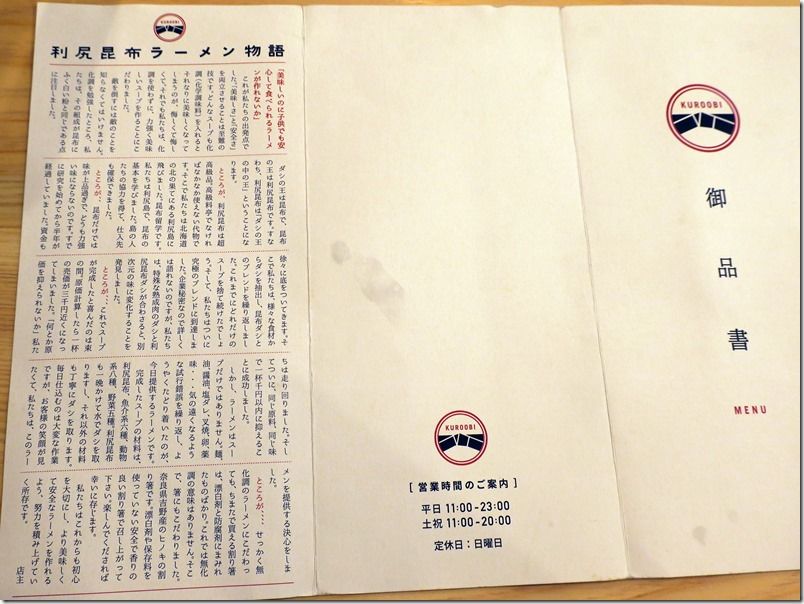 KUROOBI
利尻昆布ラーメン物語
「美味しいのに子供でも安
心して食べられるラーメ
ンが作れないか」
これが私たちの出発点で
した。「美味しさ」と「安全さ」
を両立させることは至難の
技です。どんなスープも化
調(化学調味料)を入れると
それなりに美味しくなって
しまうのが、悔しくて悔し
くて。それでも私たちは、化
調を使わずに、力強く美味
しいスープを作ることにこ
だわりました。
敵を倒すには敵のことを
知らなくてはいけません。
化調を勉強したところ、私
たちは、その組成が昆布に
ふく白い粉と同じである点
に注目しました。
ダシの王は昆布で、昆布
の王は利尻昆布です。すな
わち、利尻昆布は「ダシの王
の中の王」ということにな
ります。
ところが、利尻昆布は超
高級品。高級料亭でなけれ
ばなかなか使えない代物で
す。そこで私たちは北海道
の北の果てにある利尻島に
飛びました。昆布留学です。
私たちは利尻島で、昆布の
基本を学びました。島の人
たちの協力を得て、仕入先
も確保できました。
ところが、昆布だけでは
味が上品過ぎで、どうも力強
い味にならないのです。すで
に研究を始めてから半年が
経過していました。資金も
徐々に底をついてきます。そ
こで私たちは、様々な食材か
らダシを抽出し、昆布ダシと
のブレンドを繰り返しまし
た。これまでにどれだけの
スープを捨て続けたでしょ
う。そして、私たちはついに
究極のブレンドに到達しま
した。企業秘密なので詳しく
は語れないのですが、私たち
は、特殊な熟成肉のダシと利
尻昆布ダシが合わさると、別
次元の味に変化することを
発見しました。
ところが、、これでスープ
が完成したと喜んだのは束
の間。原価計算したら一杯
の売価が三千円近くになっ
てしまいました。「何とか原
価を抑えられないか」私た
ちは走り回りました。そし
てついに、同じ原料、同じ味
で一杯千円以内に抑えるこ
とに成功しました。
しかし、ラーメンはスー
プだけではありません。麺、
油、醤油、塩ダレ、叉焼、卵、薬
味・・・気の遠くなるよう
な試行錯誤を繰り返し、よ
うやくたどり着いたのが、
今日提供するラーメンです。
完成したスープの材料は、
利尻昆布、魚介系六種、動物
系八種、野菜五種。利尻昆布
も一晩かけて水でダシを取
りますし、それ以外の材料
も丁寧にダシを取ります。
毎日仕込むのは大変な作業
ですが、お客様の笑顔が見
たくて、私たちは、このラー
メンを提供する決心をしま
した。
ところが、、、せっかく無
化調のラーメンにこだわっ
ても、ちまたで買える割り箸
は、漂白剤と防腐剤にまみれ
たものばかり。これでは無化
調の意味はありません。そこ
で、箸にもこだわりました。
奈良県吉野産のヒノキの割
り箸です。漂白剤や保存料を
使っていない安全で香りの
良い割り箸で召し上がって
下さい。楽しんでくだされば
幸いに存じます。
私たちはこれからも初心
を大切にし、より美味しく
て安全なラーメンを作れる
よう、努力を積み上げてい
く所存です。
店主
KUROOBI
[ 営業時間のご案内 ]
平日 11:00-23:00
土祝 11:00-20:00
定休日：日曜日
KUROOBI
御品書
MENU